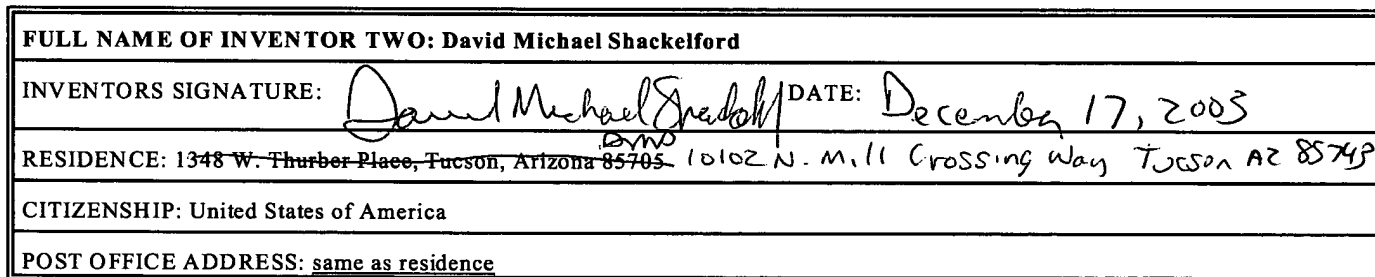 FULL NAME OF INVENTOR TWO: David Michael Shackelford
INVENTORS SIGNATURE: David Michael Shackelford DATE: December 17, 2003
RESIDENCE: 1348 W. Thurber Place, Tucson, Arizona 85705 10102 N. Mill Crossing Way Tucson AZ 85743
CITIZENSHIP: United States of America
POST OFFICE ADDRESS: same as residence